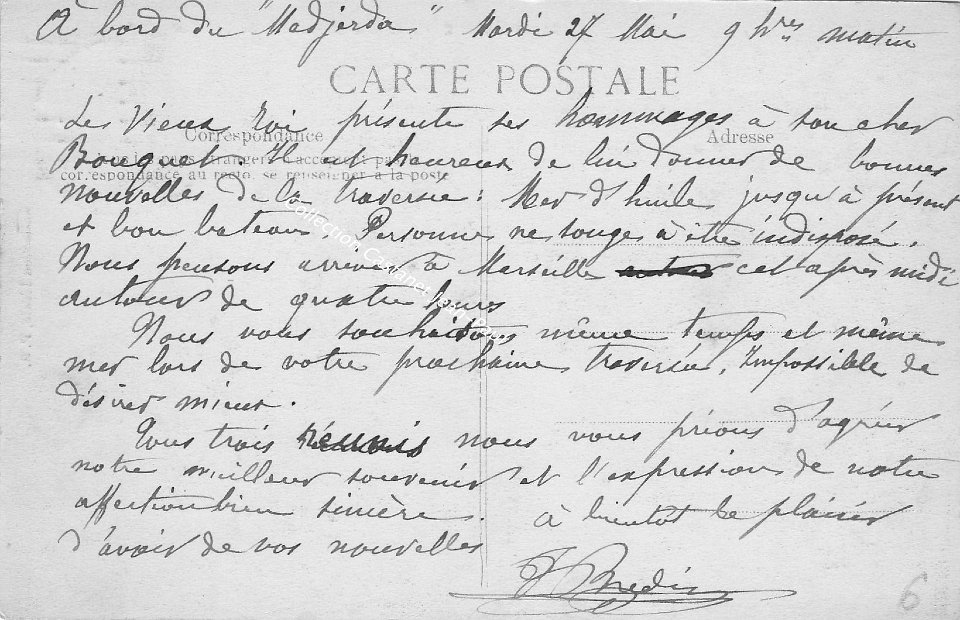 À bord du "Medjerda" Mardi 27 Mai 9 hres matin
CARTE POSTALE
Les Vieux Roi présente ses hommages à son cher
Correspondance
Adresse
Bouquet. Il est heureux de lui donner de bonnes
correspondance au recto, se renseigner à la poste
nouvelles de la traversée : Mer d'huile jusqu'à présent
et bon bateau. Personne ne songe à être indisposé.
Nous pensons arriver à Marseille cet après midi
autour de quatre heures
Nous vous souhaitons même temps et même
mer lors de votre prochaine traversée. Impossible de
désirer mieux.
Tous trois réunis nous vous prions d'agréer
notre meilleur souvenir et l'expression de notre
affection bien sincère. à bientôt le plaisir
d'avoir de vos nouvelles
Collection
6